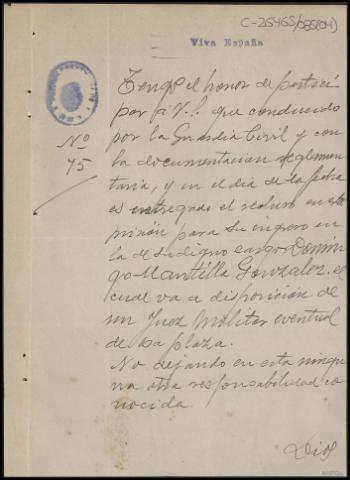 C-25465/085(04)
Viva España
Tengo el honor de partici
par á V.I. que conducido
Nº por la Guardia Civil y con
75 la documentacion reglamen
taria, y en el dia de la fecha
es entregado el recluso en esta
prisión para su ingreso en
la de su digno cargo Domin
go Mantilla Gonzalez. el
cual va a disposición de
un Juez Militar eventual
de esa plaza.
No dejando en esta ningu
na otra responsabilidad co
nocida.
Dios